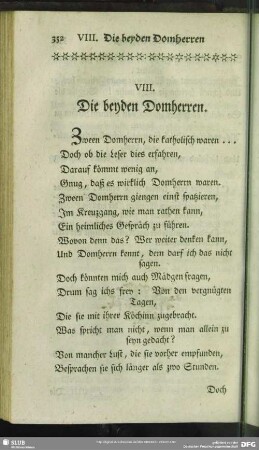 352 VIII. Die beyden Domherren
VIII.
Die beyden Domherren.
Zween Domherrn, die katholisch waren . . .
Doch ob die Leser dies erfahren,
Darauf kömmt wenig an,
Gnug, daß es wirklich Domherrn waren.
Zween Domherrn giengen einst spatzieren,
Im Kreuzgang, wie man rathen kann,
Ein heimliches Gespräch zu führen.
Wovon denn das? Wer weiter denken kann,
Und Domherrn kennt, dem darf ich das nicht
sagen.
Doch könnten mich auch Mädgen fragen,
Drum sag ichs frey: Von den vergnügten
Tagen,
Die sie mit ihrer Köchinn zugebracht.
Was spricht man nicht, wenn man allein zu
seyn gedacht?
Von mancher Lust, die sie vorher empfunden,
Besprachen sie sich länger als zwo Stunden.
Doch
SLUB
DFG